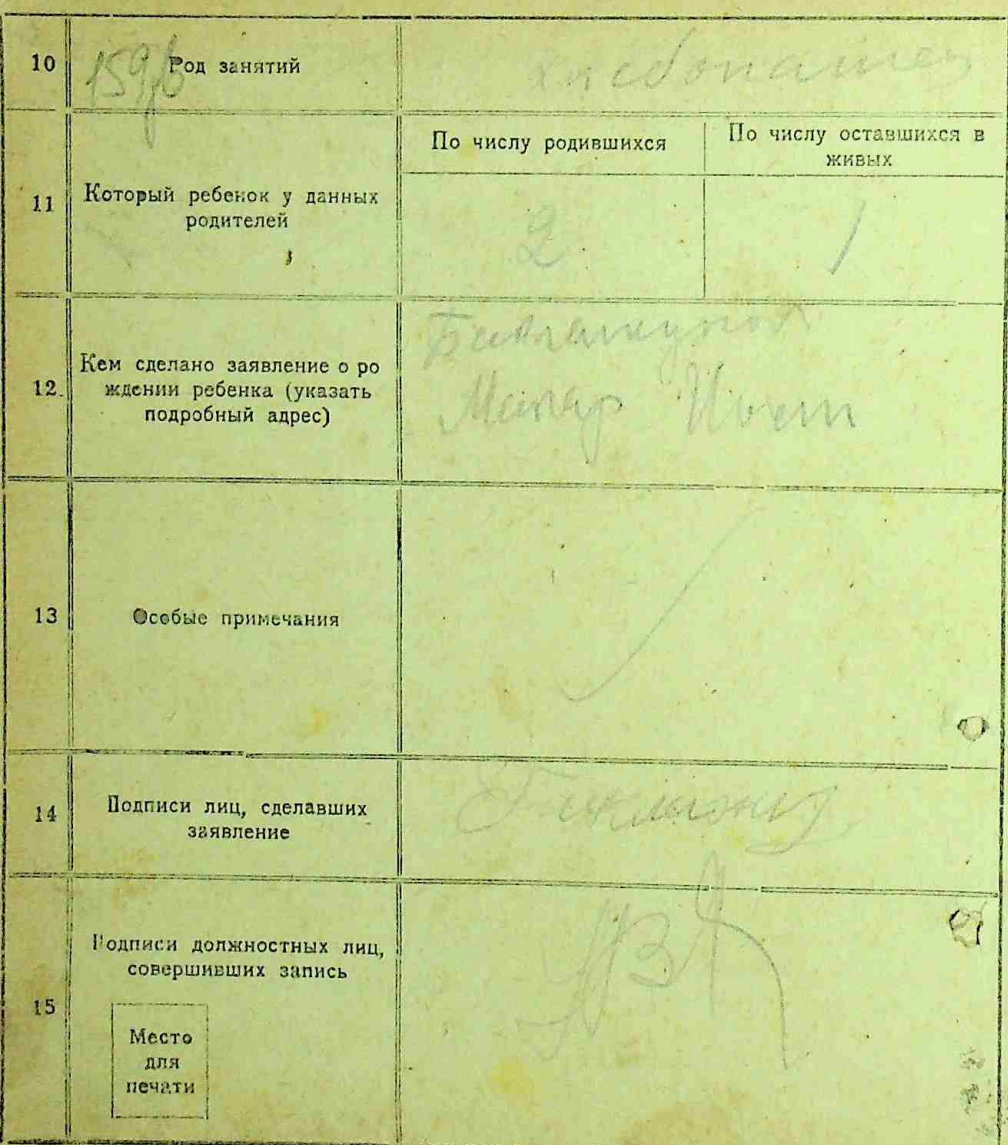 10
Род занятий
хлебопашец
11
Который ребенок у данных
родителей
По числу родившихся
По числу оставшихся в
живых
2
1
12.
Кем сделано заявление о ро
ждении ребенка (указать
подробный адрес)
Макар
13
Особые примечания
14
Подписи лиц, сделавших
заявление
15
Подписи должностных лиц,
совершивших запись
Место
для
печати